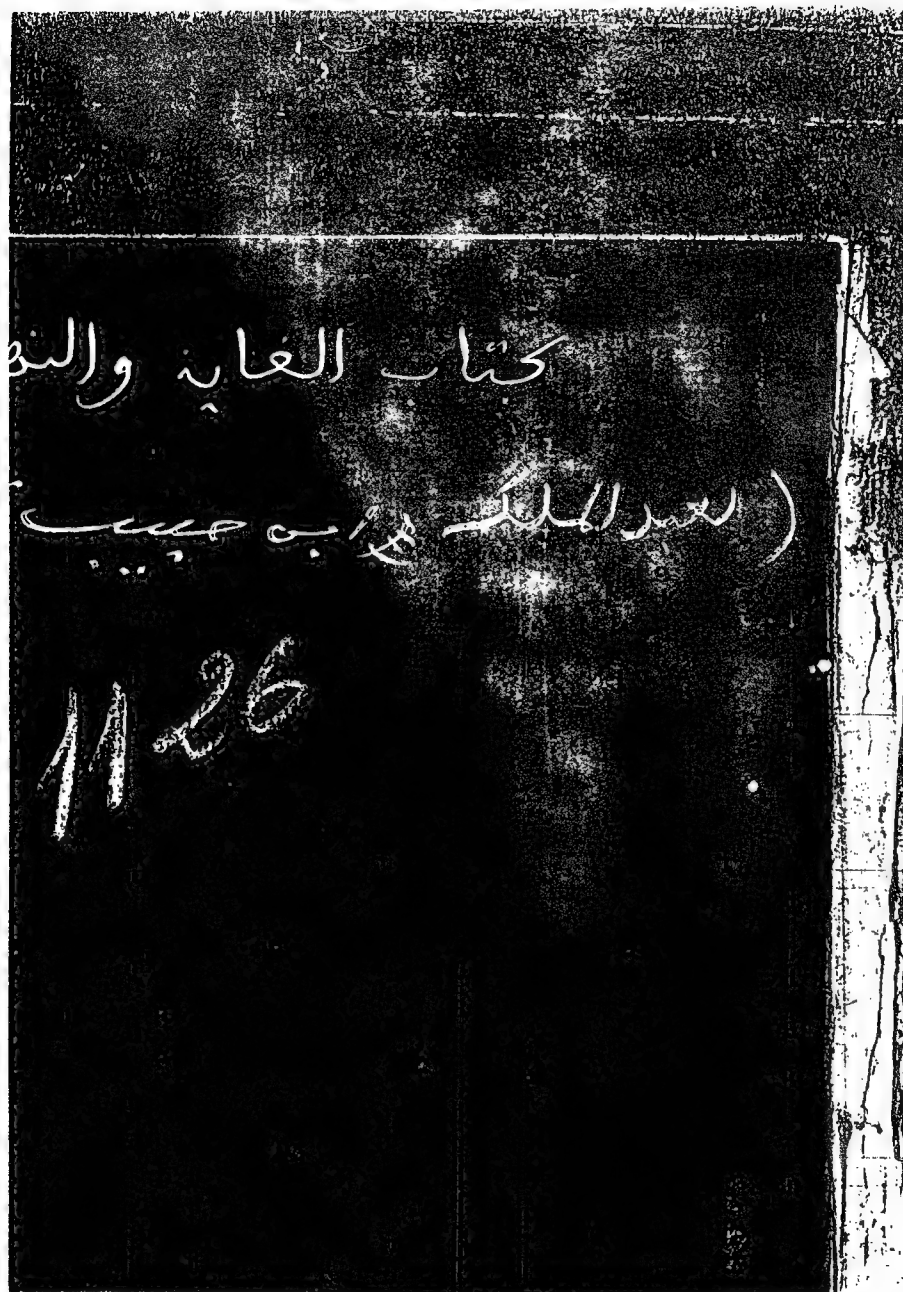 كتاب الغاية والنه
(لعبد الملك بن حبيب
11 26